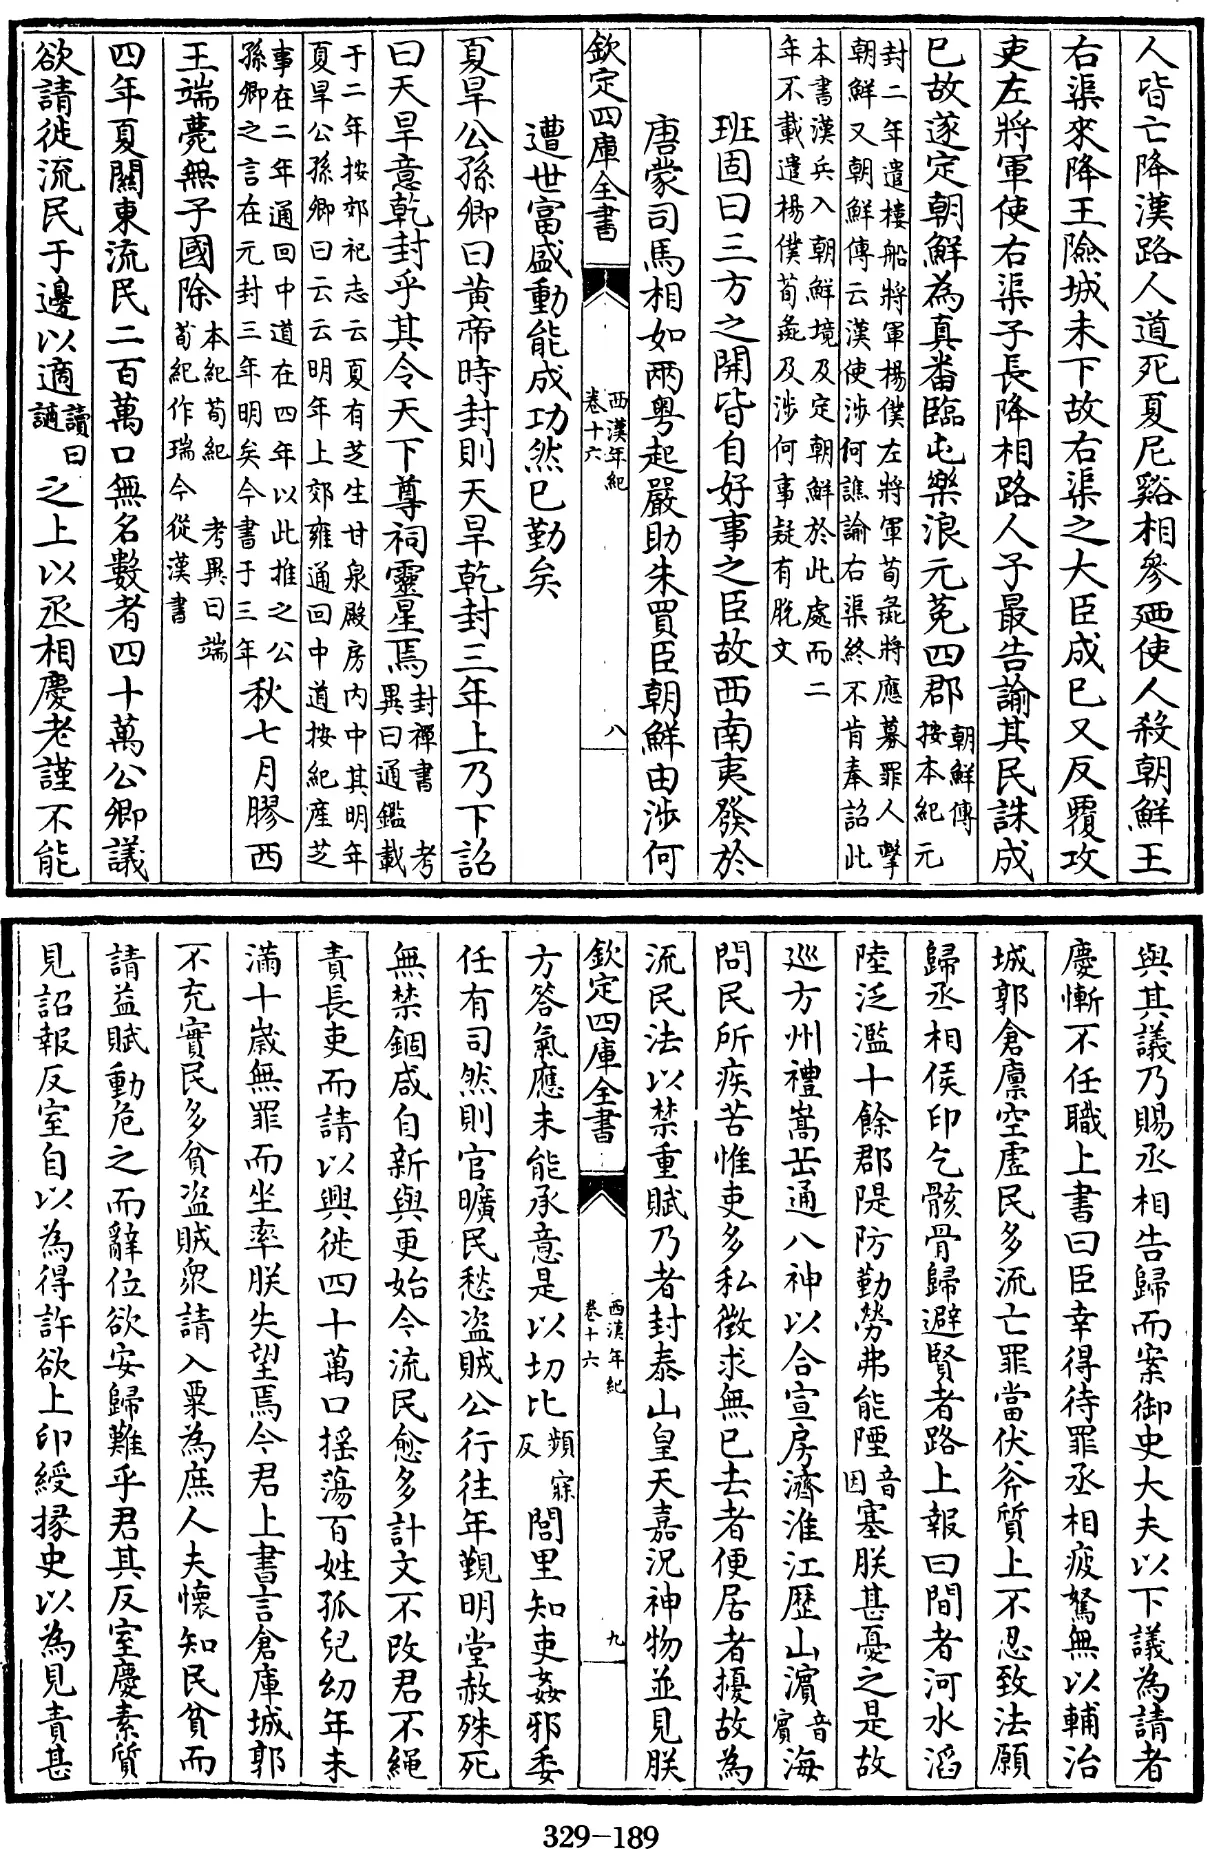 人皆亡降漢路人道死夏尼谿相參廼使人殺朝鮮王
右渠來降王險城未下故右渠之大臣成巳又反覆攻
吏左將軍使右渠子長降相路人子最告諭其民誅成
巳故遂定朝鮮為真番臨屯樂浪元莬四郡朝鮮傳按本紀元
封二年遣樓船將軍楊僕左將軍荀彘將應募罪人擊
朝鮮又朝鮮傳云漢使涉何譙諭右渠終不肯奉詔此
本書漢兵入朝鮮境及定朝鮮於此處而二
年不載遣楊僕荀彘及涉何事疑有脫文
班固曰三方之開皆自好事之臣故西南夷發於
唐蒙司馬相如兩粤起嚴助朱買臣朝鮮由涉何
欽定四庫全書
西漢年紀
卷十六
八
遭世富盛動能成功然已勤矣
夏旱公孫卿曰黄帝時封則天旱乾封三年上乃下詔
曰天旱意乾封乎其令天下尊祠靈星焉封禪書 考異曰通鑑載
于二年按郊祀志云夏有芝生甘泉殿房内中其明年
夏旱公孫卿曰云云明年上郊雍通回中道按紀產芝
事在二年通回中道在四年以此推之公
孫卿之言在元封三年明矣今書于三年秋七月膠西
王端薨無子國除本紀荀紀 考異曰端荀紀作瑞今從漢書
四年夏關東流民二百萬口無名數者四十萬公卿議
欲請徙流民于邊以適讀曰謫之上以丞相慶老謹不能
與其議乃賜丞相告歸而案御史大夫以下議為請者
慶慚不任職上書曰臣幸得待罪丞相疲駑無以輔治
城郭倉廪空虚民多流亡罪當伏斧質上不忍致法願
歸丞相侯印乞骸骨歸避賢者路上報曰間者河水滔
陸泛濫十餘郡隄防勤勞弗能陻音因塞朕甚憂之是故
巡方州禮嵩岳通八神以合宣房濟淮江歷山濵音賓海
問民所疾苦惟吏多私徵求無已去者便居者擾故為
流民法以禁重賦乃者封泰山皇天嘉況神物並見朕
欽定四庫全書
西漢年紀
卷十六
九
方答氣應未能承意是以切比頻寐反閭里知吏姦邪委
任有司然則官曠民愁盜賊公行往年覲明堂赦殊死
無禁錮咸自新與更始今流民愈多計文不改君不繩
責長吏而請以興徙四十萬口揺蕩百姓孤兒幼年未
滿十歲無罪而坐率朕失望焉今君上書言倉庫城郭
不充實民多貧盜賊衆請入粟為庶人夫懷知民貧而
請益賦動危之而辭位欲安歸難乎君其反室慶素質
見詔報反室自以為得許欲上印綬掾史以為見責甚
329-189